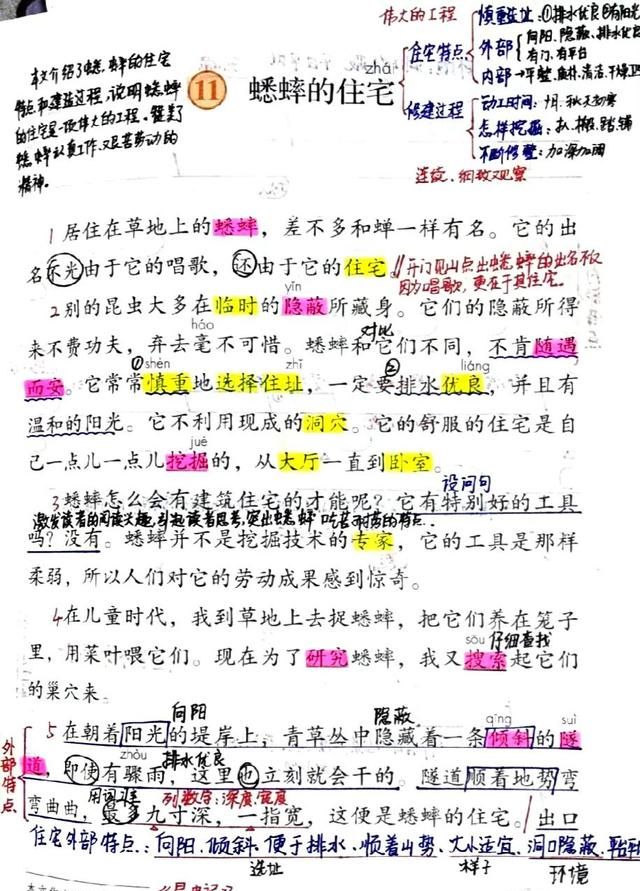 伟大的工程
住宅特点
慎重选址：①排水优良②有阳光
外部 向阳、隐蔽、排水优良
有门、有平台
内部→平整、简朴、清洁、干燥、卫
修建过程
动工时间：十月、秋天初寒
怎样挖掘：扒、搬、踏、铺
不断修整：加深加阔
连续、细致观察
本文介绍了蟋蟀的住宅
特点和建造过程，说明蟋蟀
的住宅是一项伟大的工程。赞美了
蟋蟀认真工作、不辞劳动的
精神。
zhái
11 蟋蟀的住宅
1居住在草地上的蟋蟀，差不多和蝉一样有名。它的出
名不光由于它的唱歌，还由于它的住宅。
开门见山点出蟋蟀的出名不仅
因为唱歌，更在于其住宅。
yǐn
2别的昆虫大多在临时的隐蔽所藏身。它们的隐蔽所得
háo 对比
来不费功夫，弃去毫不可惜。蟋蟀和它们不同，不肯随遇
①shèn zhǐ ② liáng
而安。它常常慎重地选择住址，一定要排水优良，并且有
温和的阳光。它不利用现成的洞穴。它的舒服的住宅是自
jué
己一点儿一点儿挖掘的，从大厅一直到卧室。
设问句
3蟋蟀怎么会有建筑住宅的才能呢？它有特别好的工具
激发读者的阅读兴趣，引起读者思考，突出蟋蟀吃苦耐劳的特点.
吗？没有。蟋蟀并不是挖掘技术的专家，它的工具是那样
柔弱，所以人们对它的劳动成果感到惊奇。
4在儿童时代，我到草地上去捉蟋蟀，把它们养在笼子
sōu 仔细查找
里，用菜叶喂它们。现在为了研究蟋蟀，我又搜索起它们
的巢穴来。
向阳 隐蔽 qīng suì
5在朝着阳光的堤岸上，青草丛中隐藏着一条倾斜的隧
外部特点
zhòu 排水优良
道，即使有骤雨，这里也立刻就会干的。隧道顺着地势弯
用词准 列数字：深度、宽度
弯曲曲，最多九寸深，一指宽，这便是蟋蟀的住宅。出口
住宅外部特点：向阳、倾斜、便于排水、顺着山势、大小适宜、洞口隐蔽、平台
选址 样子 环境